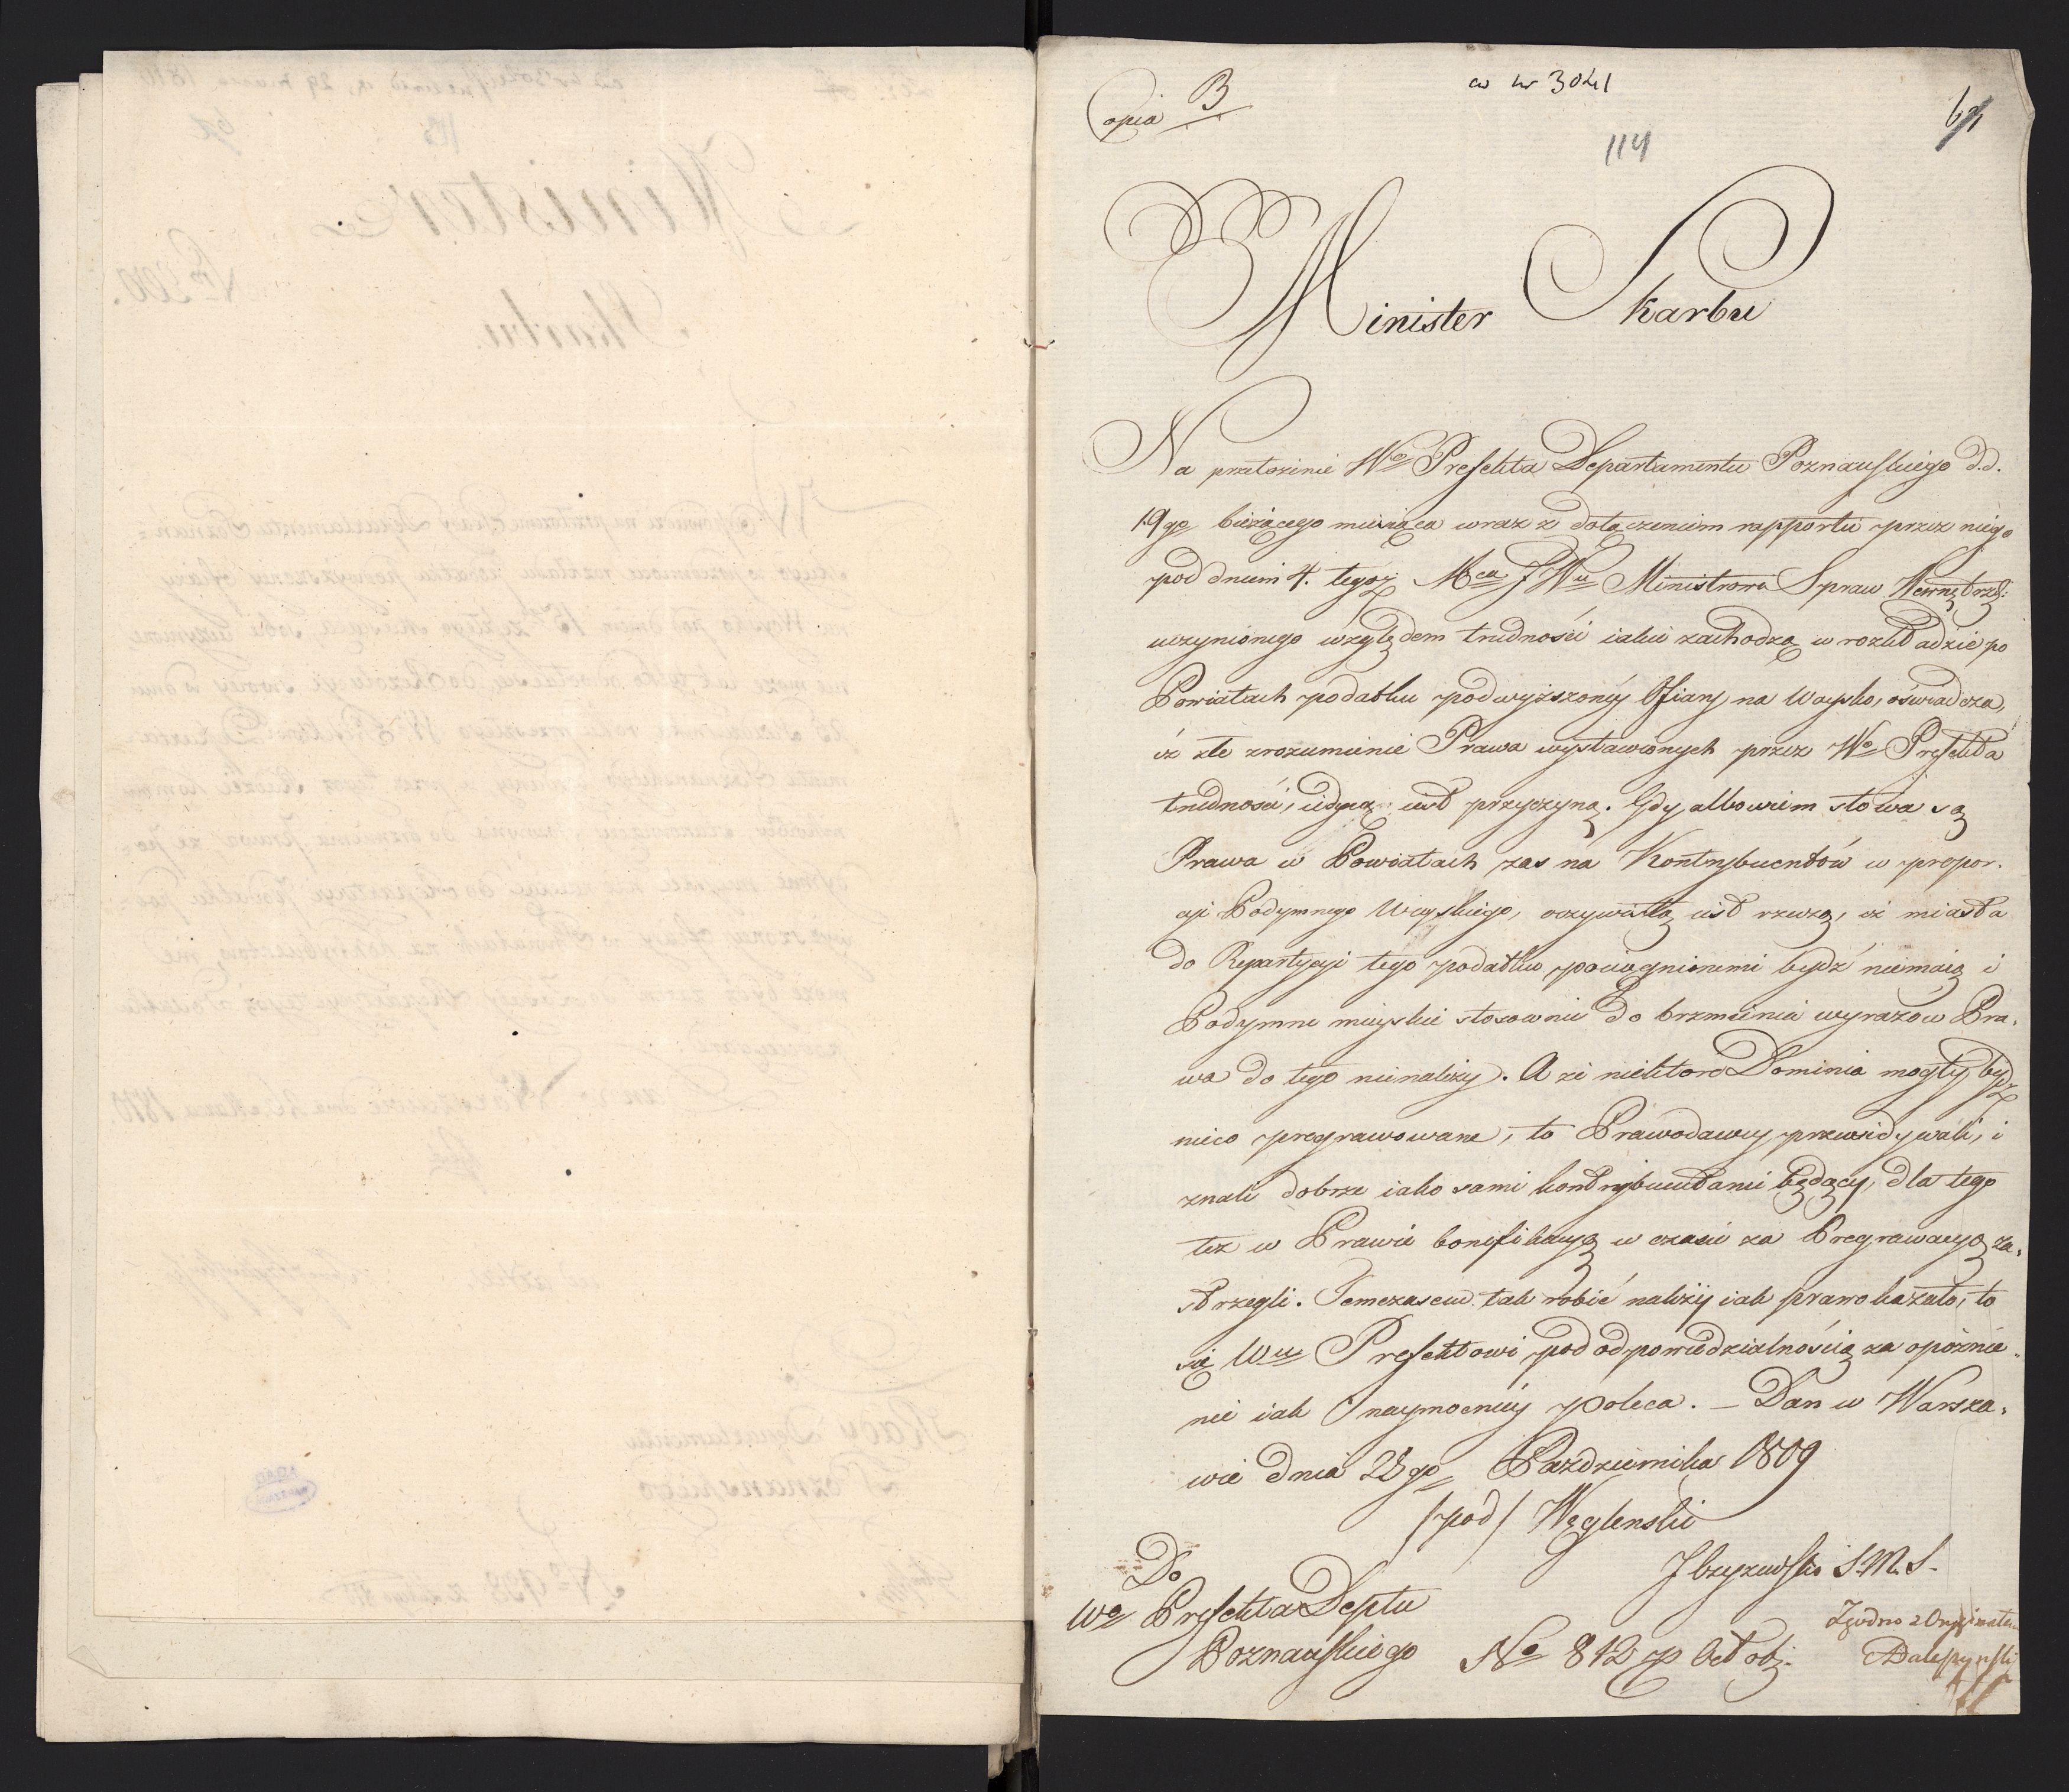 Copia B
ad Nr 3041
114
Minister Skarbu
Na przełożenie Wo Prefekta Departamentu Poznańskiego d.d.
19go bieżącego miesiąca wraz z dołączeniem rapportu przez niego
pod dniem 4. tegoż Mca JWu Ministrowi Spraw Wewnętrz:
uczynionego względem trudności iakie zachodzą w rozkładzie po
Powiatach podatku podwyższoney Ofiary na Woysko, oświadcza,
iż złe zrozumienie Prawa wystawionych przez Wo Prefekta
trudności, iedyną iest przyczyną. Gdy albowiem słowa są
Prawa w Powiatach zas na Kontrybuentów w propor-
cyi Podymnego Wieyskiego, oczywistą iest rzeczą, iż miasta
do Repartycyi tego podatku pociągnionemi bydź niemaią i
Podymne mieyskie stosownie do brzmienia wyrazów Pra-
wa do tego nienależy. A że niektore Dominia mogły bydź
nieco pregrawowane, to Prawodawcy przewidywali, i
znali dobrze iako sami kontrybuentami będący, dla tego
też w Prawie bonifikacyą w czasie za Pregrawacyą za-
strzegli. Temczasem tak robić należy iak prawo kazało, to
się Wu Prefektowi pod odpowiedzialnością za opóźnie-
nie iak naymocniey poleca. – Dan w Warsza-
wie dnia 28go Pazdziernika 1809
/pod/ Węglenski
Do
Wo Prefekta Deptu
Poznańskiego
No 812 p Oct obj.
S.M.S.
Zgodno z Oryginałem